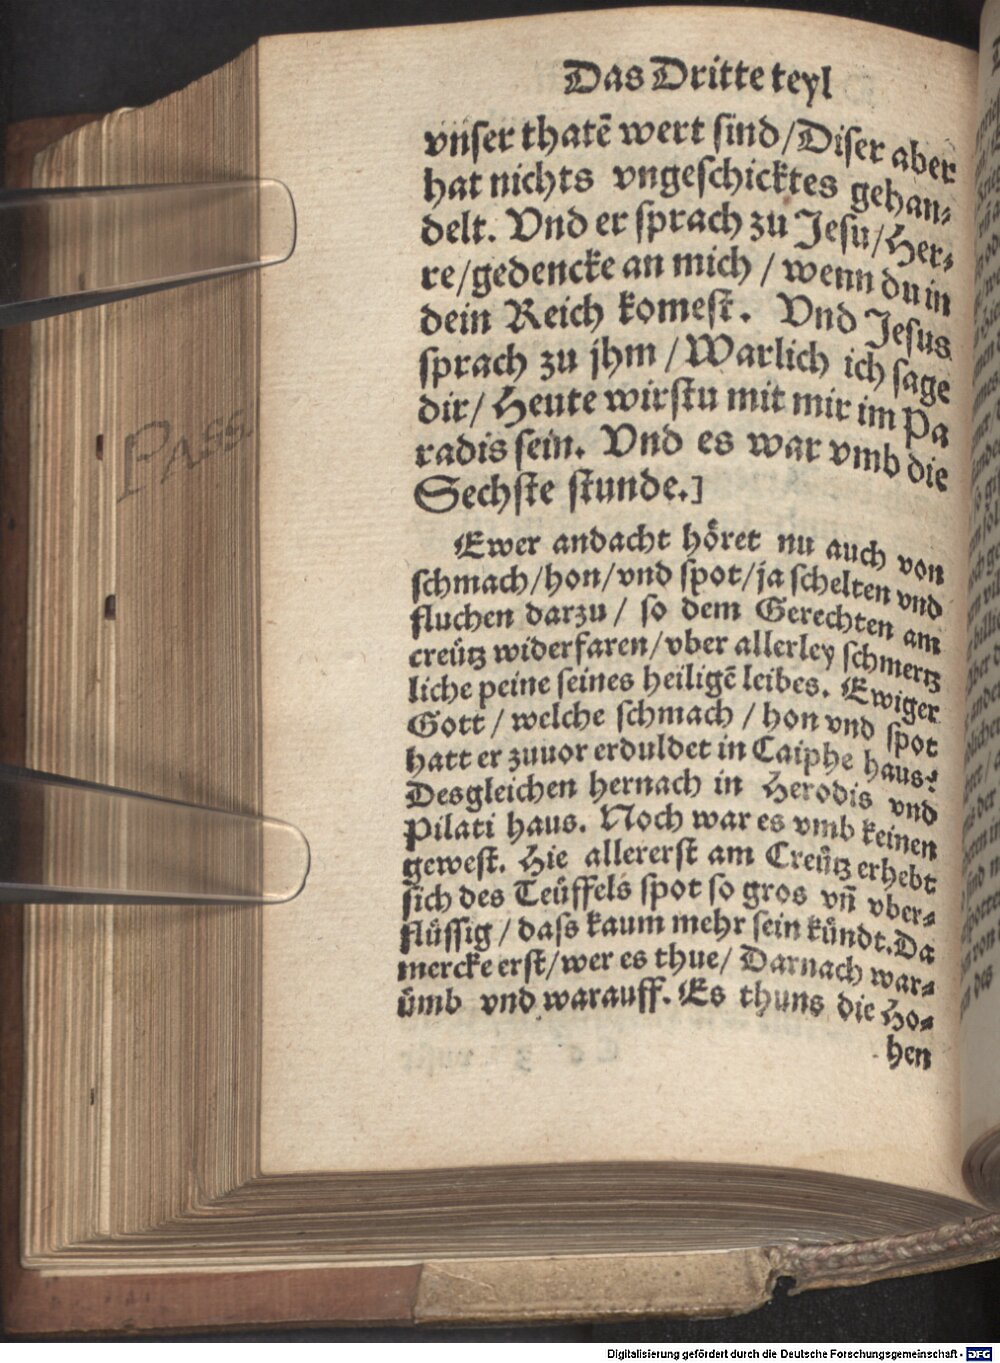 Das Dritte teyl
vnſer thatē wert ſind/Diſer aber
hat nichts vngeſchicktes gehan⸗
delt. Vnd er ſprach zu Jeſu/Her⸗
re/gedencke an mich / wenn du in
dein Reich komeſt. Vnd Jeſus
ſprach zu jhm /Warlich ich ſage
dir/ Heute wirſtu mit mir im Pa
radis ſein. Vnd es war vmb die
Sechſte ſtunde.]
Ewer andacht hoͤret nu auch von
ſchmach/hon/vnd ſpot/ja ſchelten vnd
fluchen darzu / ſo dem Gerechten am
creuͤtz widerfaren/vber allerley ſchmertz
liche peine ſeines heiligē leibes. Ewiger
Gott / welche ſchmach / hon vnd ſpot
hatt er zuuor erduldet in Caiphe haus?
Desgleichen hernach in Herodis vnd
Pilati haus. Noch war es vmb keinen
geweſt. Hie allererſt am Creuͤtz erhebt
ſich des Teuͤffels ſpot ſo gros vn̄ vber⸗
fluͤſſig / daſs kaum mehr ſein kuͤndt.Da
mercke erſt/wer es thue/ Darnach war⸗
uͤmb vnd warauff. Es thuns die Ho⸗
hen
PASS.
Digitalisierung gefördert durch die Deutsche Forschungsgemeinschaft - DFG